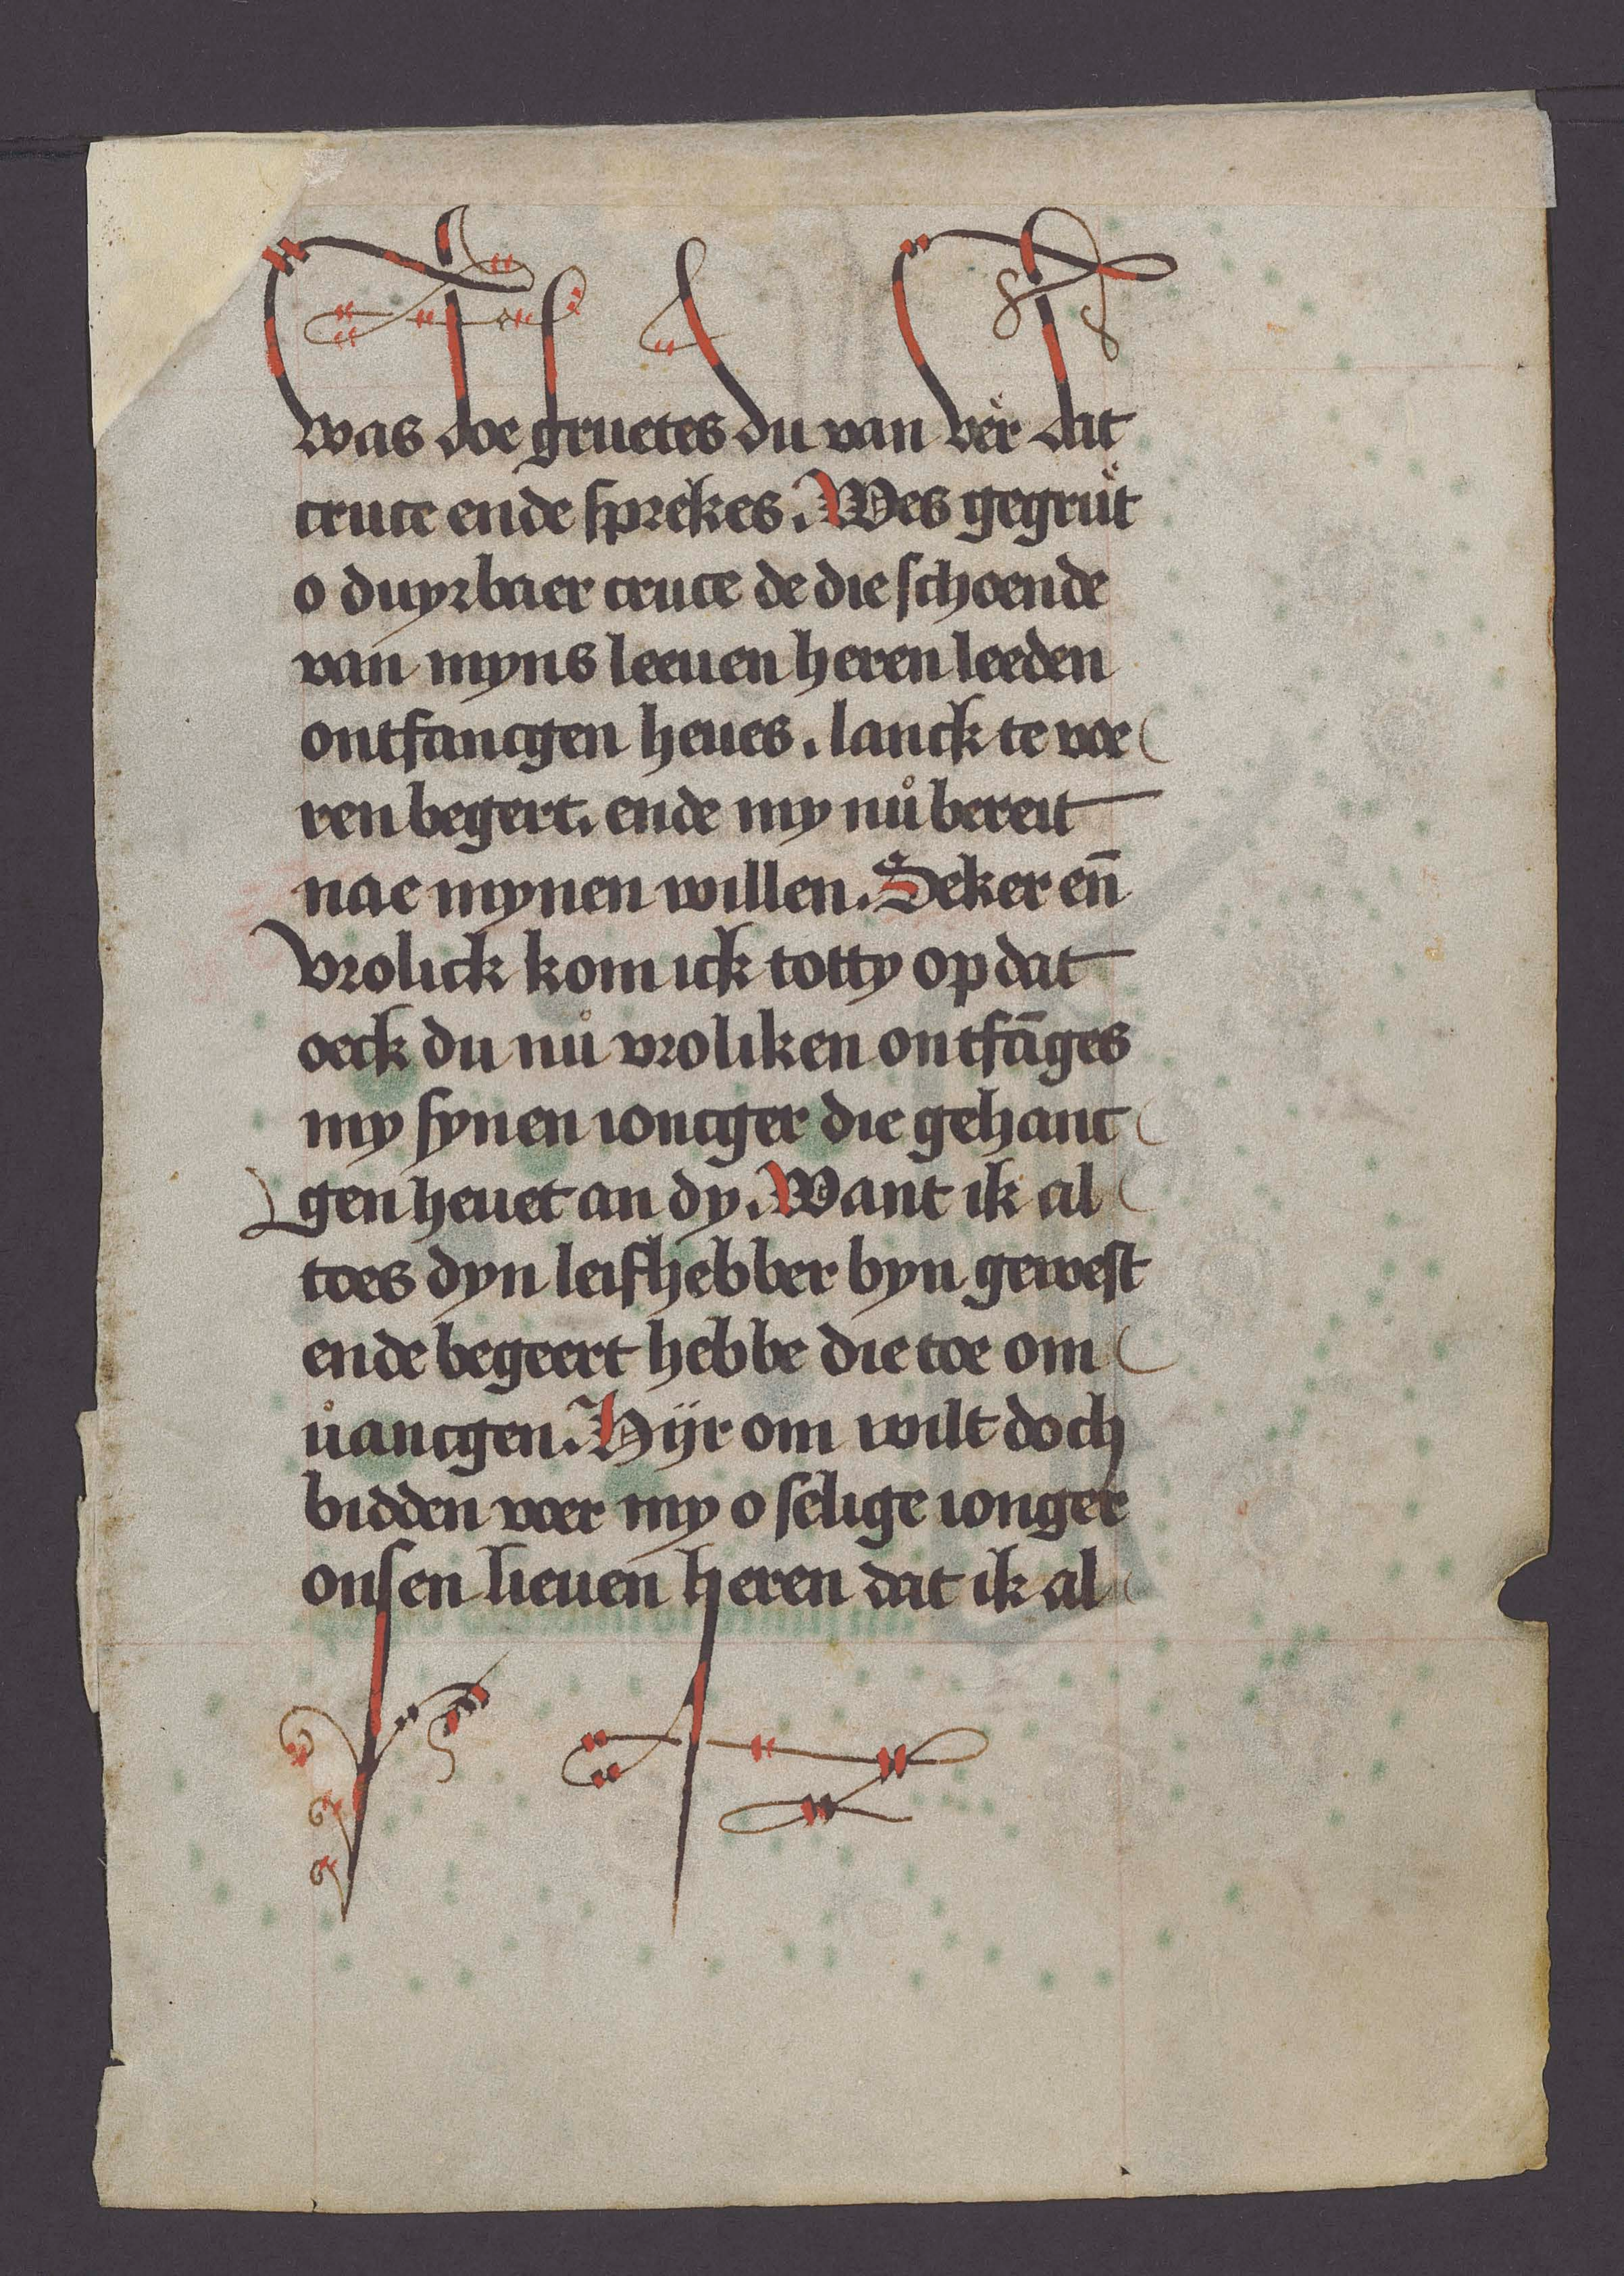 was doe gruetes du van vër dat
cruce ende sprekes. Wes gegrüt
o duyrbaer cruce de die schoende
van myns leeuen heren leeden
ontfancgen heues. lanck te voe
ren begert. ende my nů bereit
nae mynen willen. Seker en̄
vrolick kom ick totty op dat
oeck du nů vroliken ontfāges
my synen ioncger die gehanc
gen heuet an dy. Want ik al
toes dyn leifhebber byn gewest
ende begeert hebbe die toe om
ůancgen. Hijr om wilt doch
bidden voer my o selige ionger
onsen lieuen heren dat ik al